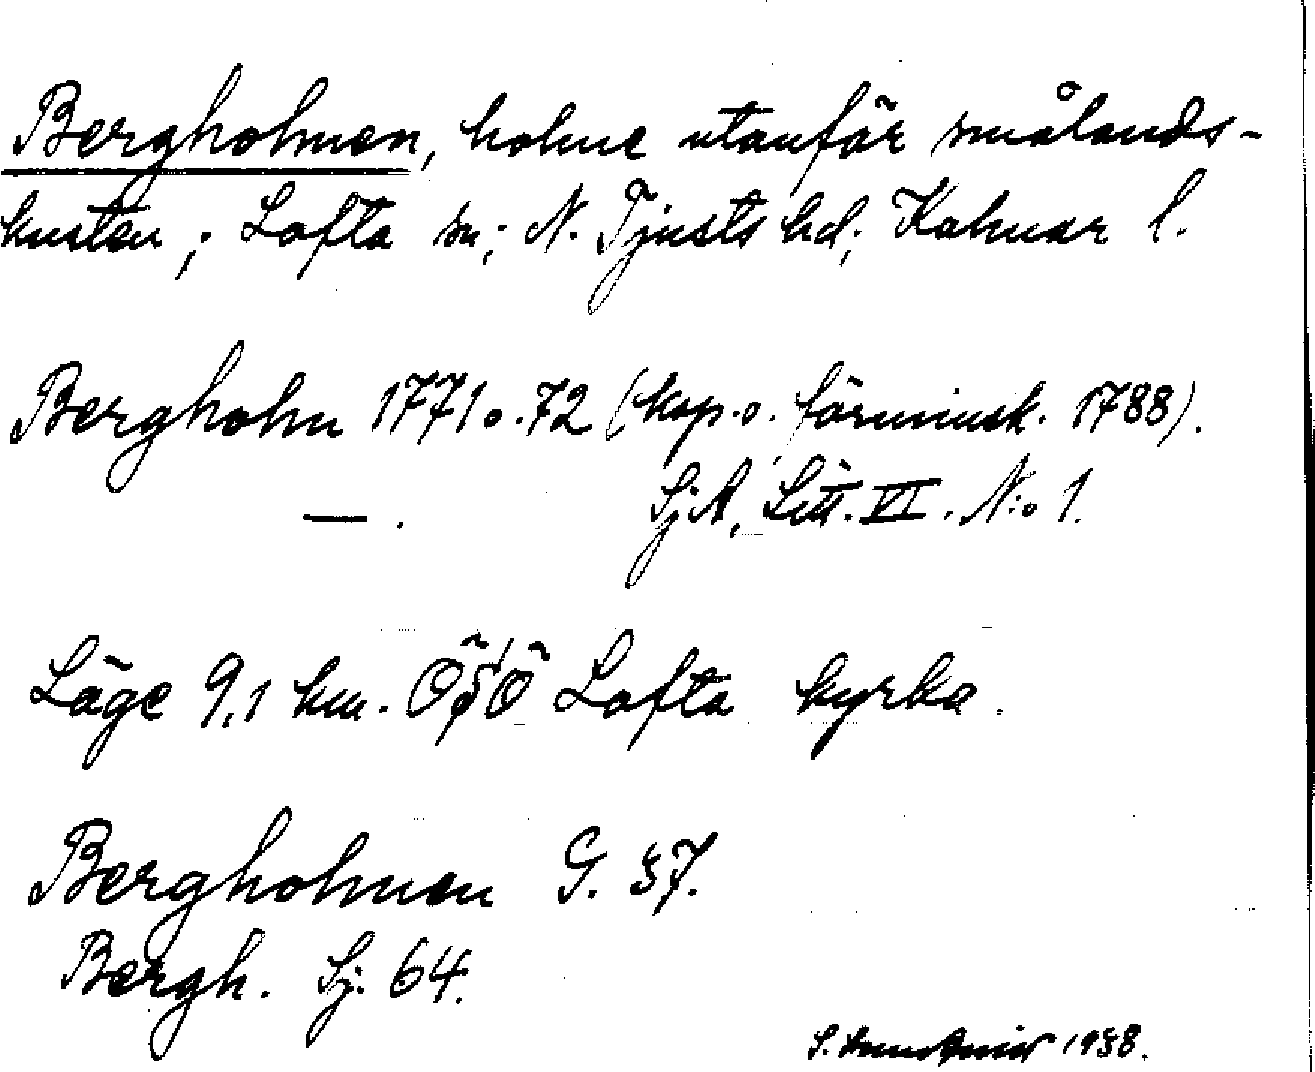 Bergholmen, holme utanför smålands-
kusten; Lofta sn; N. Tjusts hd; Kalmar l.
Bergholm 1771 o. 72 (kop. o. förminsk. 1788).
— . SjA, Litt. VI. N:o 1.
Läge 9,1 km. ÖSÖ Lofta kyrka.
Bergholmen G. 57.
Bergh. Sj. 64.
S. 1938.